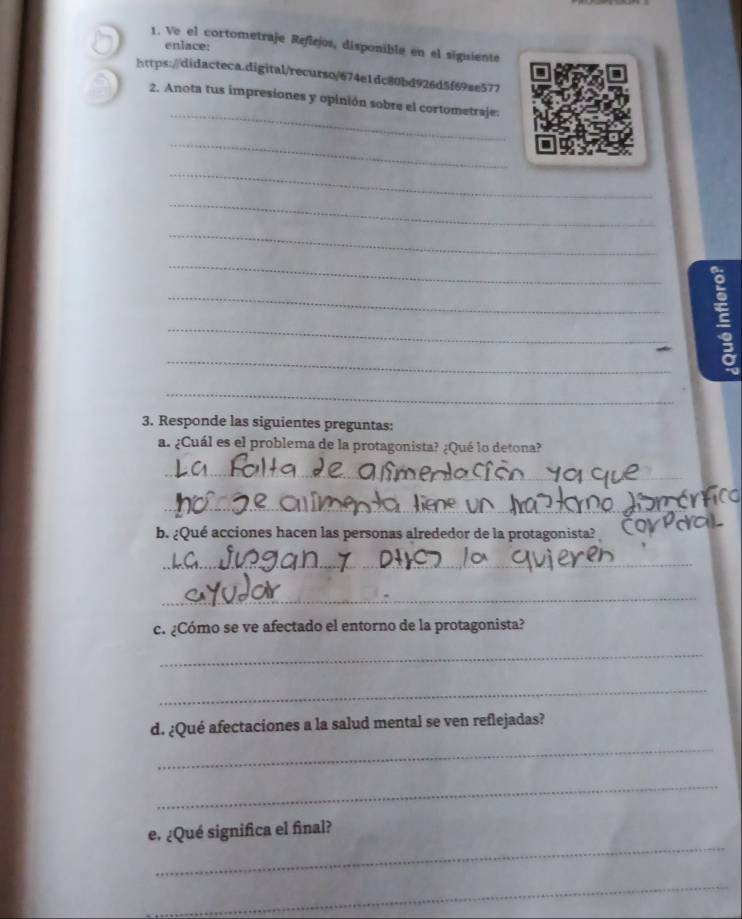 1. Ve el cortometraje Reflejos, disponible en el siguiente
enlace:
https://didacteca.digital/recurso/674e1dc80bd926d5f69ae577
2. Anota tus impresiones y opinión sobre el cortometraje:
¿Qué infiero?
3. Responde las siguientes preguntas:
a. ¿Cuál es el problema de la protagonista? ¿Qué lo detona?
La Falta de alimentación ya que
no se alimenta tiene un trastorno dismórfico
corporal
b. ¿Qué acciones hacen las personas alrededor de la protagonista?
La jusgan y otros la quieren
ayudar
c. ¿Cómo se ve afectado el entorno de la protagonista?
d. ¿Qué afectaciones a la salud mental se ven reflejadas?
e. ¿Qué significa el final?